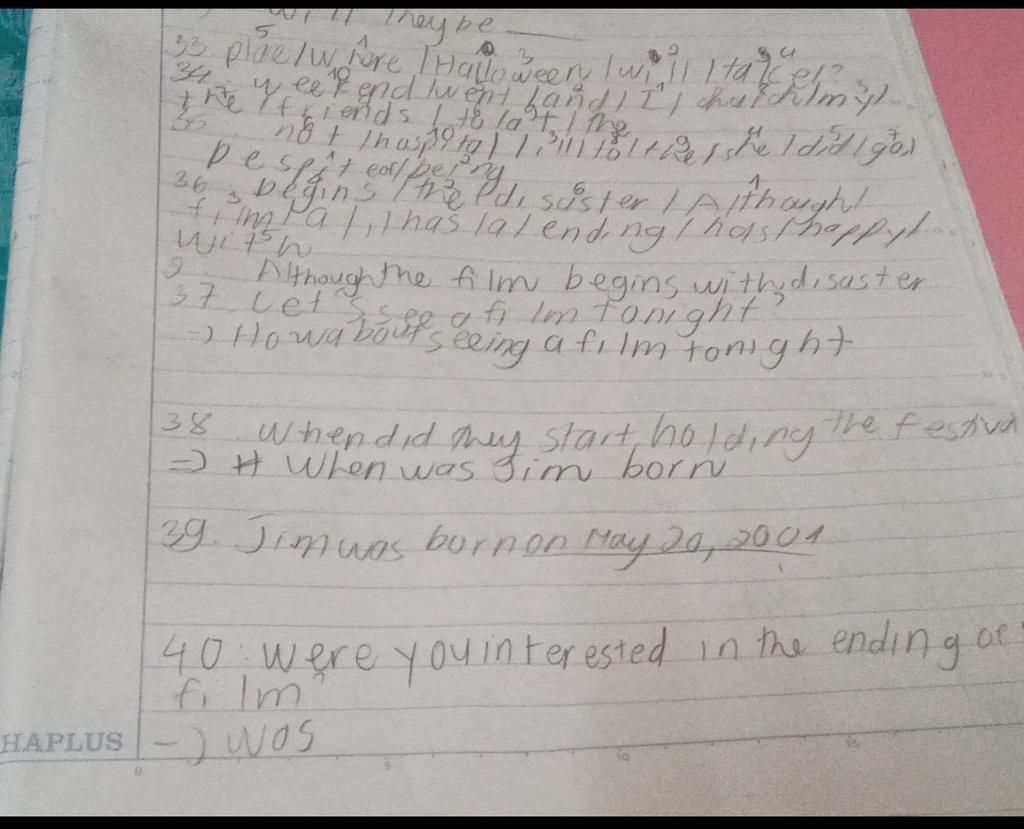 will they be
33 place / where / Halloween / will / take / ?
34. weekend / went / and / I / church / my /
the / friends / to / last / he
35 not / hospital / , / ill / to / the / she / did / go /
Despite / being
36. begins / the / disaster / Although /
film / a / , / has / a / ending / has / happy /
with
2 Although the film begins with disaster
37 Let's see a film tonight?
=> How about seeing a film tonight
38 When did they start holding the festival
=> When was Jim born
39. Jim was born on May 20, 2001
40. were you interested in the ending of
film?
-) was
HAPLUS
0 5 10 15